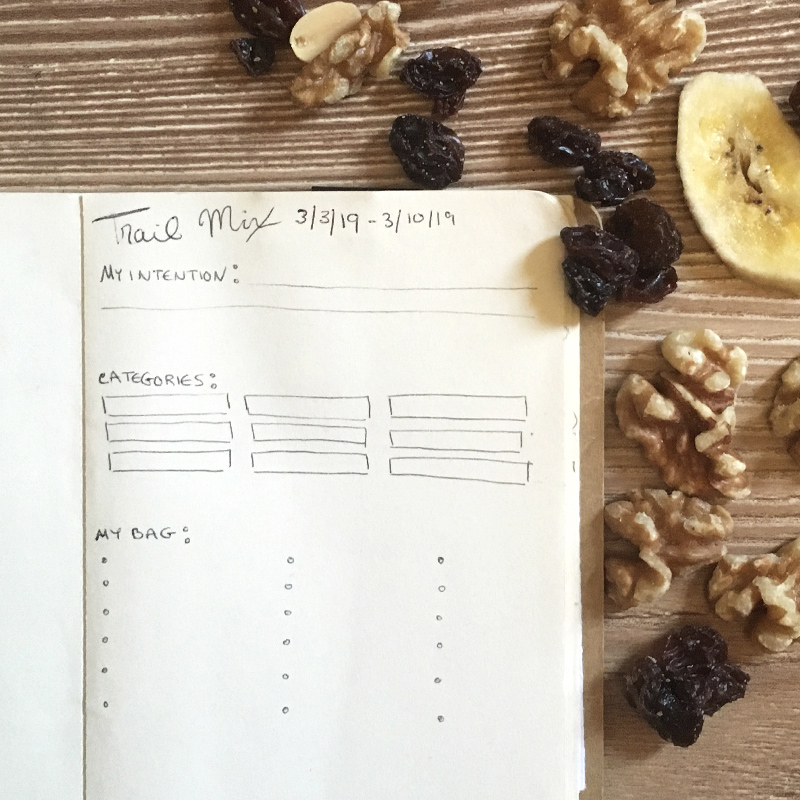 Trail Mix 3/3/19 - 3/10/19
MY INTENTION:
CATEGORIES:
MY BAG: